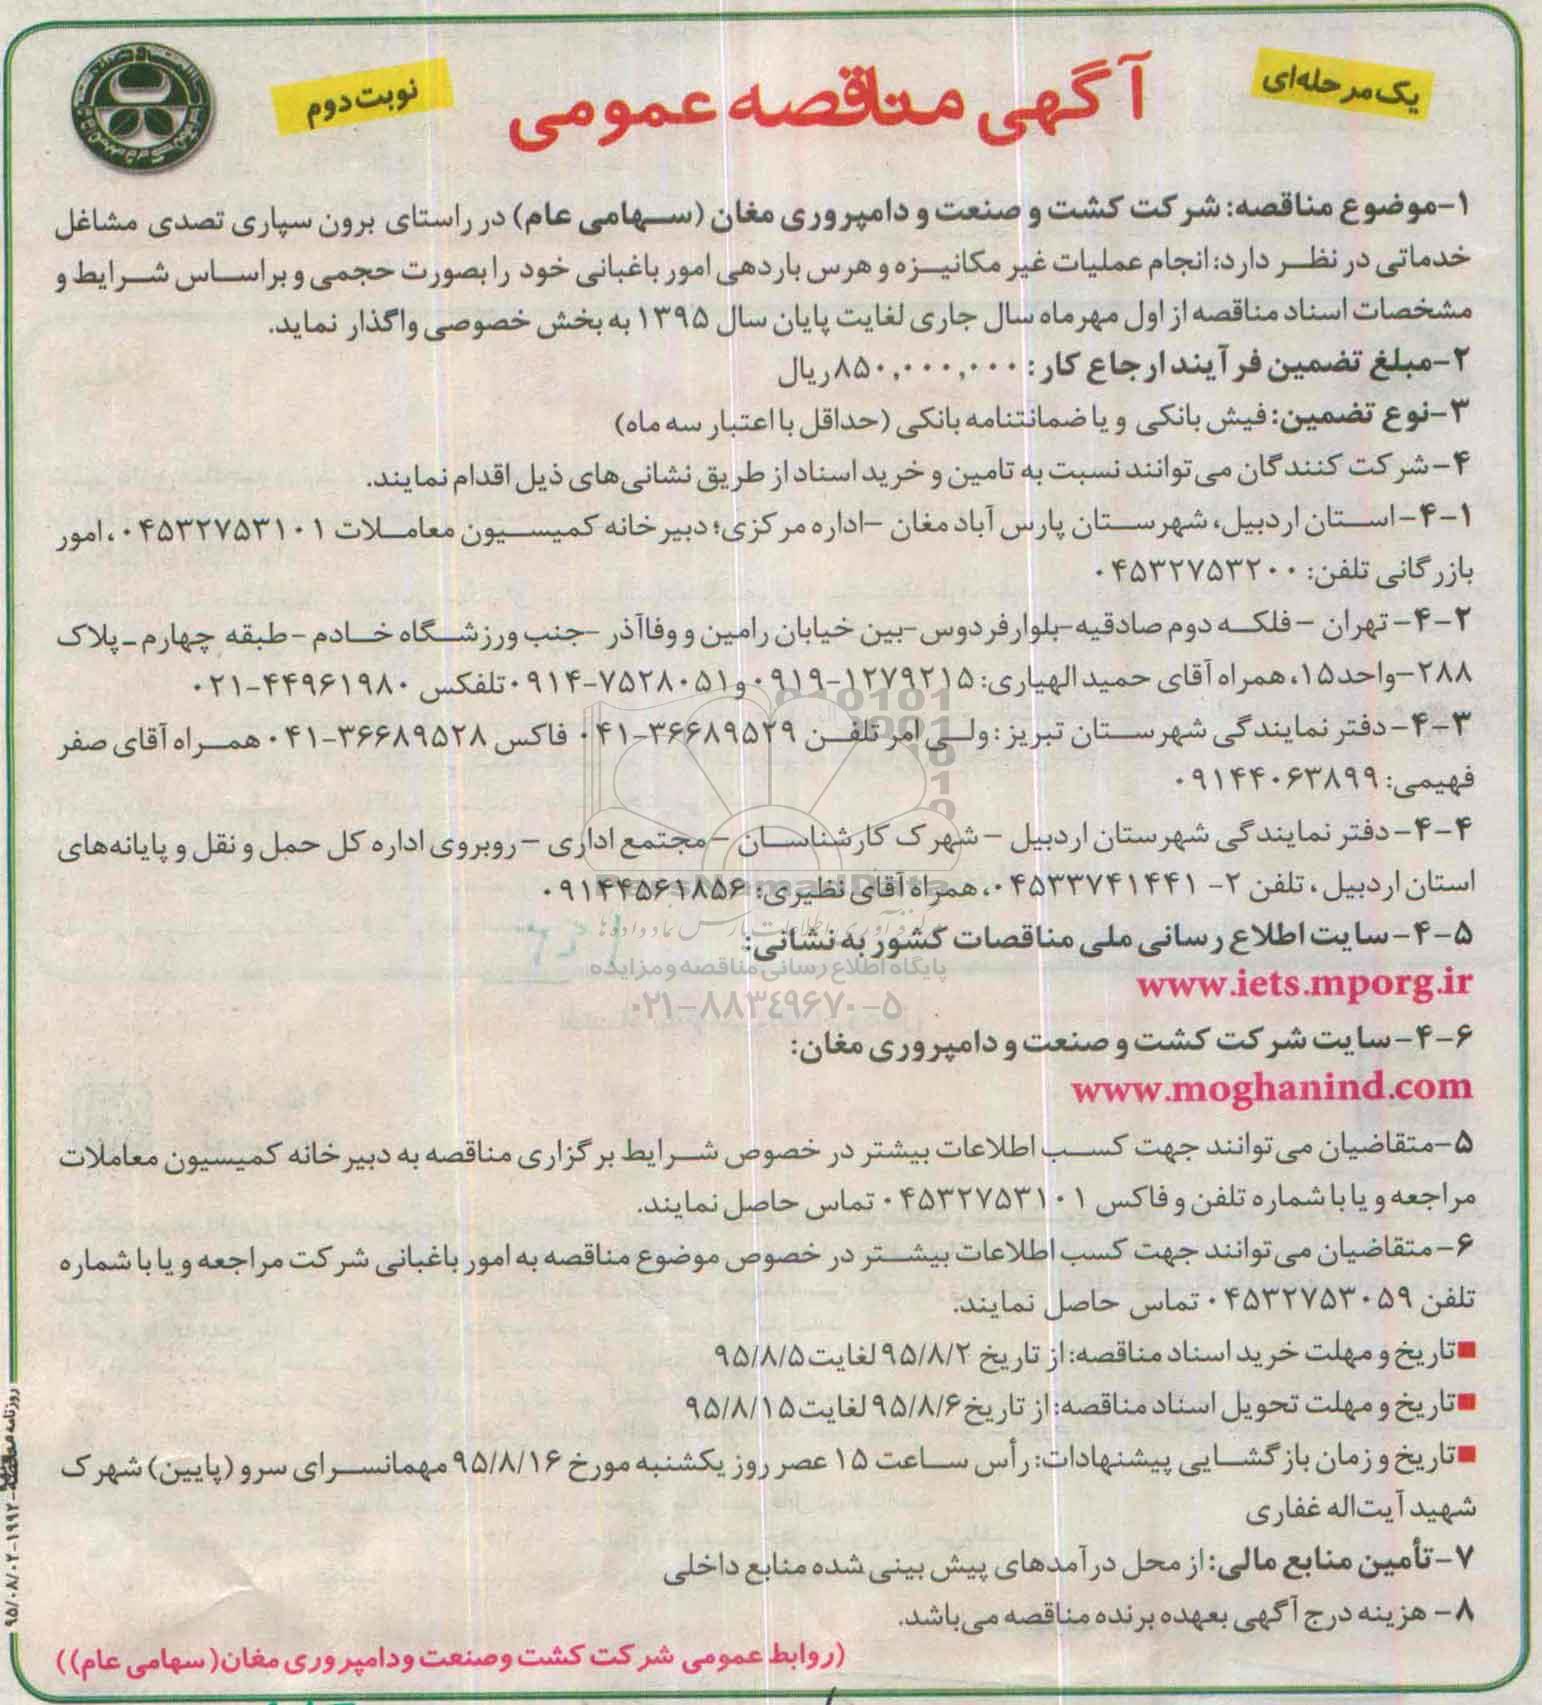 یک مرحله‌ای
آگهی مناقصه عمومی
نوبت دوم
۱-موضوع مناقصه: شرکت کشت و صنعت و دامپروری مغان (سهامی عام) در راستای برون سپاری تصدی مشاغل
خدماتی در نظر دارد: انجام عملیات غیر مکانیزه و هرس باردهی امور باغبانی خود را بصورت حجمی و براساس شرایط و
مشخصات اسناد مناقصه از اول مهرماه سال جاری لغایت پایان سال ۱۳۹۵ به بخش خصوصی واگذار نماید.
۲-مبلغ تضمین فرآیند ارجاع کار: ۸۵۰,۰۰۰,۰۰۰ریال
۳-نوع تضمین: فیش بانکی و یا ضمانتنامه بانکی (حداقل با اعتبار سه ماه)
۴-شرکت کنندگان می‌توانند نسبت به تامین و خرید اسناد از طریق نشانی‌های ذیل اقدام نمایند.
۴-۱-استان اردبیل، شهرستان پارس آباد مغان -اداره مرکزی؛ دبیرخانه کمیسیون معاملات ۰۴۵۳۲۷۵۳۱۰۱، امور
بازرگانی تلفن: ۰۴۵۳۲۷۵۳۲۰۰
۴-۲- تهران - فلکه دوم صادقیه-بلوار فردوس-بین خیابان رامین و وفاآذر -جنب ورزشگاه خادم -طبقه چهارم-پلاک
۲۸۸-واحد۱۵، همراه آقای حمید الهیاری: ۱۲۷۹۲۱۵-۰۹۱۹ و ۷۵۲۸۰۵۱-۰۹۱۴ تلفکس ۴۴۹۶۱۹۸۰-۰۲۱
۴-۳- دفتر نمایندگی شهرستان تبریز: ولی امر تلفن ۳۶۶۸۹۵۲۹-۰۴۱ فاکس ۳۶۶۸۹۵۲۸-۰۴۱ همراه آقای صفر
فهیمی: ۰۹۱۴۴۰۶۳۸۹۹
۴-۴- دفتر نمایندگی شهرستان اردبیل - شهرک کارشناسان - مجتمع اداری - روبروی اداره کل حمل و نقل و پایانه‌های
استان اردبیل، تلفن ۲- ۰۴۵۳۳۷۴۱۴۴۱، همراه آقای نظیری: ۰۹۱۴۴۵۶۱۸۵۶
۴-۵-سایت اطلاع رسانی ملی مناقصات کشور به نشانی:
پایگاه اطلاع رسانی مناقصه و مزایده
www.iets.mporg.ir
۰۲۱-۸۸۳۴۹۶۷۰-۵
۴-۶-سایت شرکت کشت و صنعت و دامپروری مغان:
www.moghanind.com
۵-متقاضیان می‌توانند جهت کسب اطلاعات بیشتر در خصوص شرایط برگزاری مناقصه به دبیرخانه کمیسیون معاملات
مراجعه و یا با شماره تلفن و فاکس ۰۴۵۳۲۷۵۳۱۰۱ تماس حاصل نمایند.
۶-متقاضیان می‌توانند جهت کسب اطلاعات بیشتر در خصوص موضوع مناقصه به امور باغبانی شرکت مراجعه و یا با شماره
تلفن ۰۴۵۳۲۷۵۳۰۵۹ تماس حاصل نمایند.
■تاریخ و مهلت خرید اسناد مناقصه: از تاریخ ۹۵/۸/۲ لغایت ۹۵/۸/۵
■تاریخ و مهلت تحویل اسناد مناقصه: از تاریخ ۹۵/۸/۶ لغایت ۹۵/۸/۱۵
■تاریخ و زمان بازگشایی پیشنهادات: رأس ساعت ۱۵ عصر روز یکشنبه مورخ ۹۵/۸/۱۶ مهمانسرای سرو (پایین) شهرک
شهید آیت‌اله غفاری
۷-تأمین منابع مالی: از محل درآمدهای پیش بینی شده منابع داخلی
۸- هزینه درج آگهی بعهده برنده مناقصه می‌باشد.
(روابط عمومی شرکت کشت وصنعت ودامپروری مغان(سهامی عام))